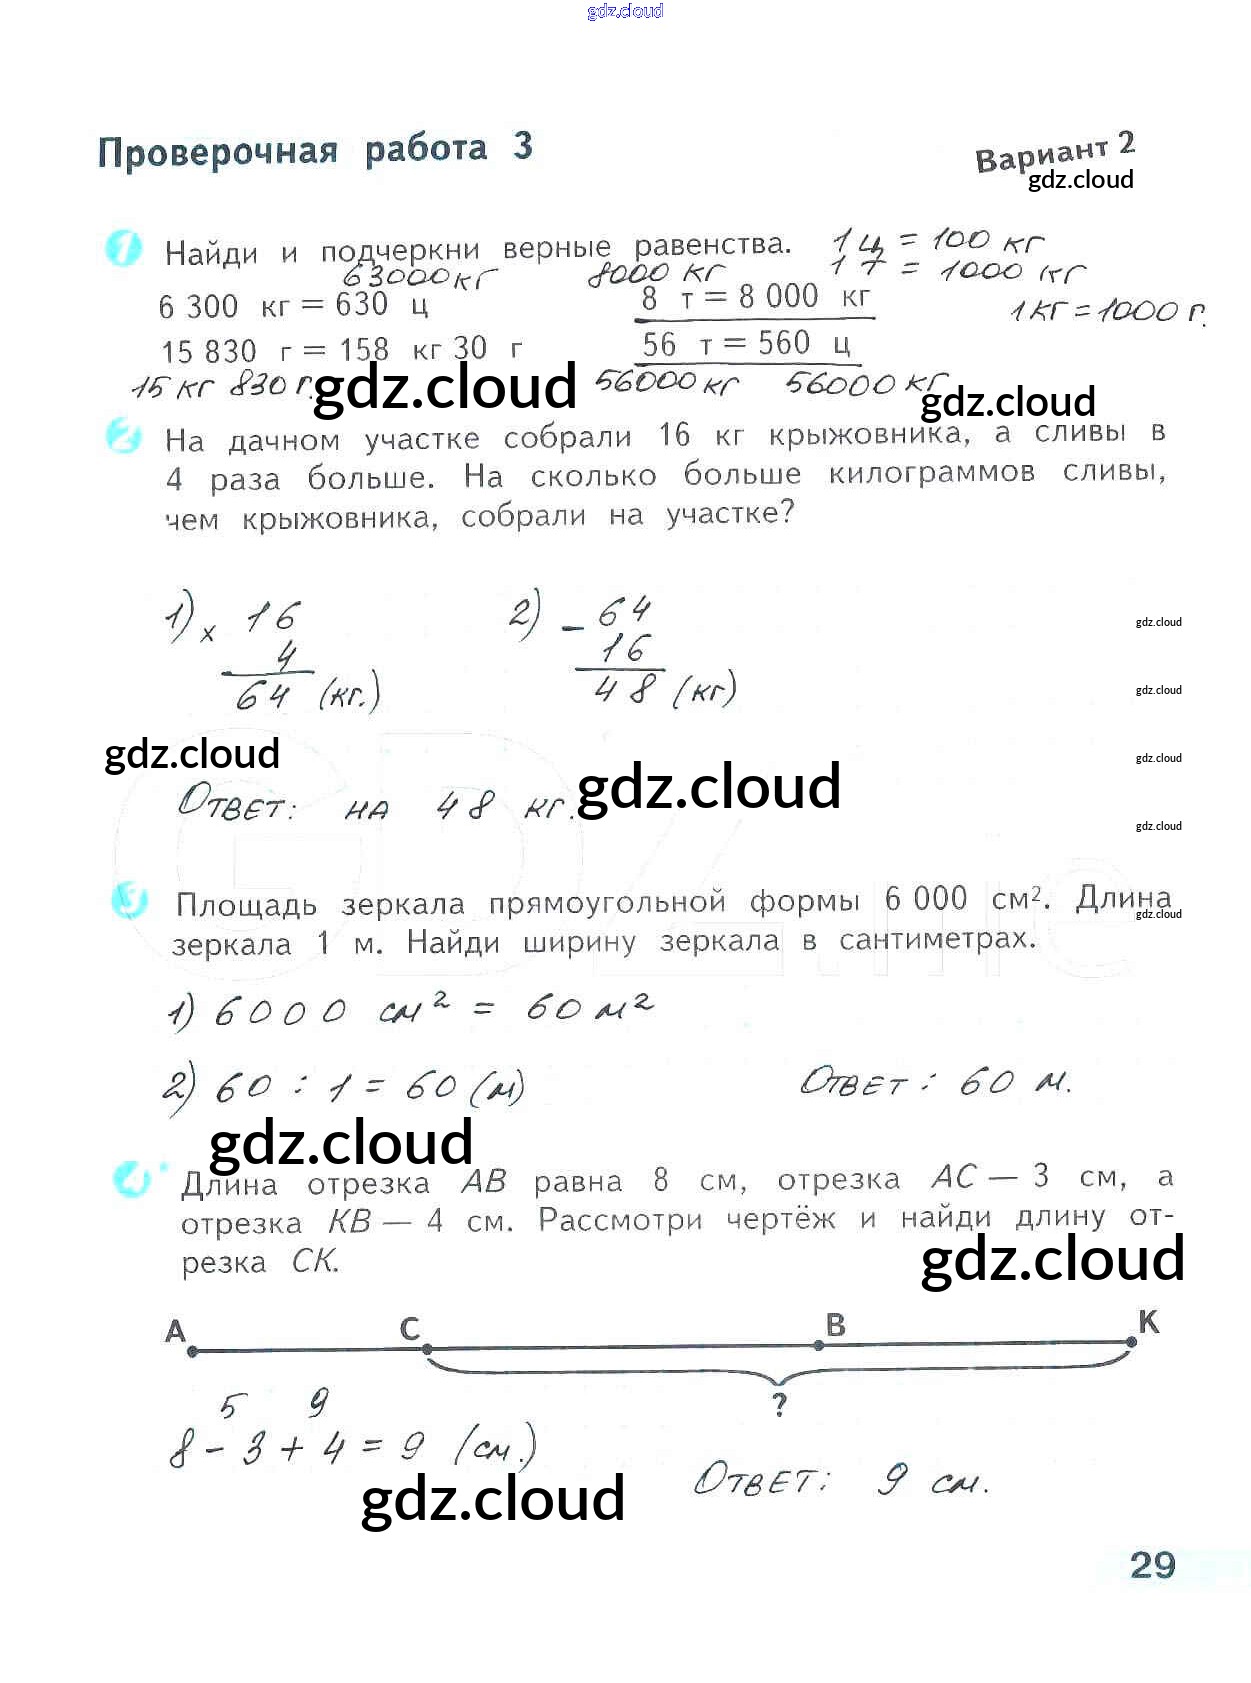 gdz.cloud
Проверочная работа 3
Вариант 2
gdz.cloud
1 Найди и подчеркни верные равенства. 1 ц = 100 кг
63000кг 8000 кг 1 т = 1000 кг
6 300 кг = 630 ц 8 т = 8 000 кг 1кг = 1000 г.
15 830 г = 158 кг 30 г 56 т = 560 ц
15 кг 830 г. gdz.cloud 56000 кг 56000 кг gdz.cloud
2 На дачном участке собрали 16 кг крыжовника, а сливы в
4 раза больше. На сколько больше килограммов сливы,
чем крыжовника, собрали на участке?
1) х 16 2) – 64
4 16
64 (кг.) 48 (кг)
gdz.cloud
gdz.cloud
gdz.cloud gdz.cloud gdz.cloud
Ответ: на 48 кг.
gdz.cloud
3 Площадь зеркала прямоугольной формы 6 000 см². Длина
gdz.cloud
зеркала 1 м. Найди ширину зеркала в сантиметрах.
1) 6000 см² = 60 м²
2) 60 : 1 = 60 (м) Ответ: 60 м.
gdz.cloud
4 Длина отрезка АВ равна 8 см, отрезка АС — 3 см, а
отрезка КВ — 4 см. Рассмотри чертёж и найди длину от-
резка СК. gdz.cloud
А С В К
?
5 9
8 – 3 + 4 = 9 (см.)
Ответ: 9 см.
gdz.cloud
29